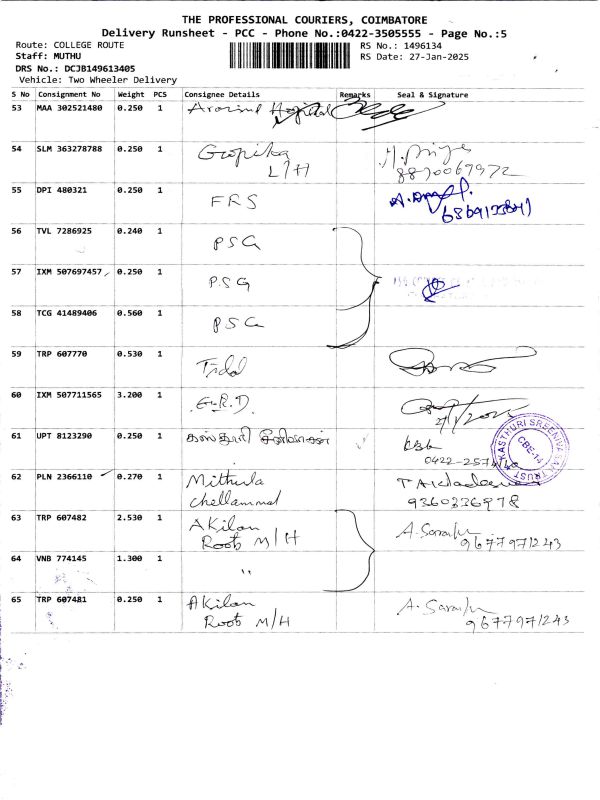 THE PROFESSIONAL COURIERS, COIMBATORE
Delivery Runsheet - PCC - Phone No.:0422-3505555 - Page No.:5
Route: COLLEGE ROUTE
RS No.: 1496134
Staff: MUTHU
RS Date: 27-Jan-2025
DRS No.: DCJB149613405
Vehicle: Two Wheeler Delivery
S No Consignment No Weight PCS Consignee Details Remarks Seal & Signature
53 MAA 302521480 0.250 1 Aravind Hospital
54 SLM 363278788 0.250 1 Gopika
L/H
8870067972
55 DPI 480321 0.250 1 FRS
56 TVL 7286925 0.240 1 PSG
57 IXM 507697457 0.250 1 PSG
58 TCG 41489406 0.560 1 PSG
59 TRP 607770 0.530 1 Tidel
60 IXM 507711565 3.200 1 G.R.D
61 UPT 8123290 0.250 1 கஸ்தூரி
KASTHURI SREENIVASAN TRUST
CBE-14
62 PLN 2366110 0.270 1 Mithula
chellammal
9360236978
63 TRP 607482 2.530 1 Akilan
Roots M/H
9677971243
64 VNB 774145 1.300 1 "
65 TRP 607481 0.250 1 Akilan
Roots M/H
9677971243